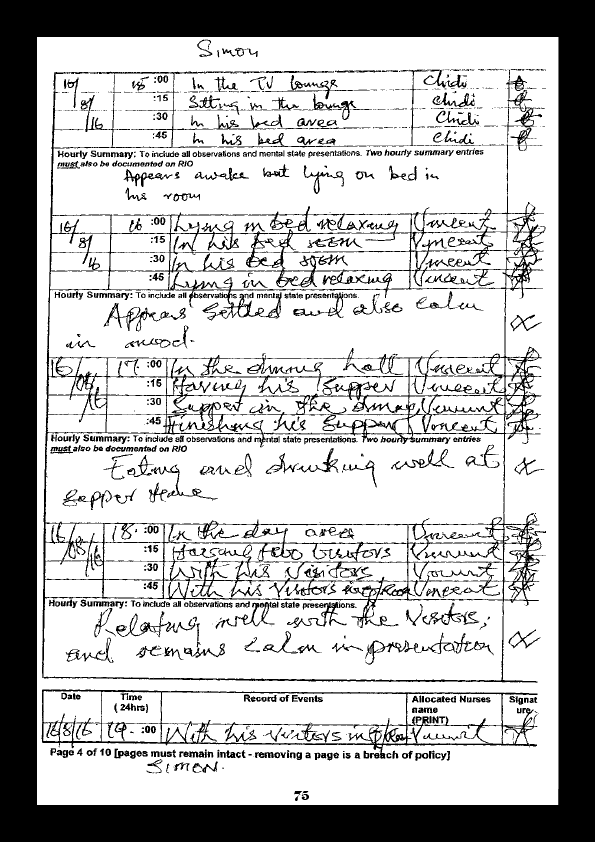 Simon
16/8/16 15 :00 In the TV lounge Chidi
:15 Sitting in the lounge Chidi
:30 In his bed area Chidi
:45 In his bed area Chidi
Hourly Summary: To include all observations and mental state presentations. Two hourly summary entries
must also be documented on RIO
Appears awake but lying on bed in
his room
16/8/16 16 :00 Lying in bed relaxing Vincent
:15 In his bed room Vincent
:30 In his bed room Vincent
:45 Lying in bed relaxing Vincent
Hourly Summary: To include all observations and mental state presentations.
Appears settled and also calm
in mood.
16/08/16 17 :00 In the dining hall Vincent
:15 Having his Supper Vincent
:30 Supper in the dining Vincent
:45 Finishing his Supper Vincent
Hourly Summary: To include all observations and mental state presentations. Two hourly summary entries
must also be documented on RIO
Eating and drinking well at
Supper time
16/08/16 18 :00 In the day area Vincent
:15 Having two visitors Vincent
:30 With his visitors Vincent
:45 With his visitors Vincent
Hourly Summary: To include all observations and mental state presentations.
Relating well with the visitors,
and remains calm in presentation
Date Time (24hrs) Record of Events Allocated Nurses name (PRINT) Signat ure
16/8/16 19 :00 With his visitors in Vincent
Page 4 of 10 [pages must remain intact - removing a page is a breach of policy]
SIMON.
75